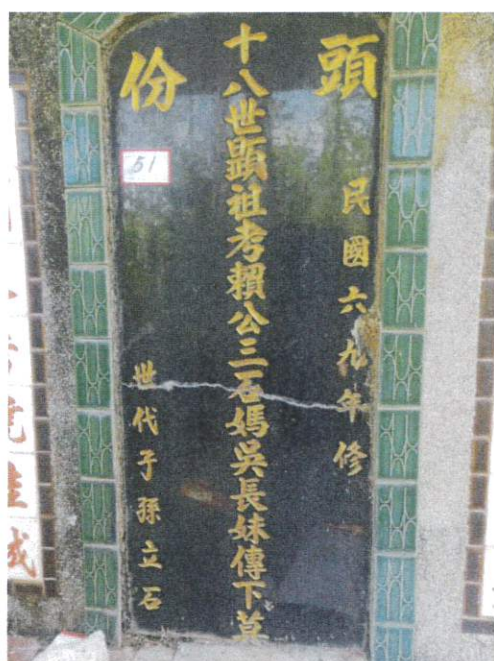 頭份
民國六九年修
十八世顯祖考賴公三石媽吳長妹傳下墓
世代子孫立石
51